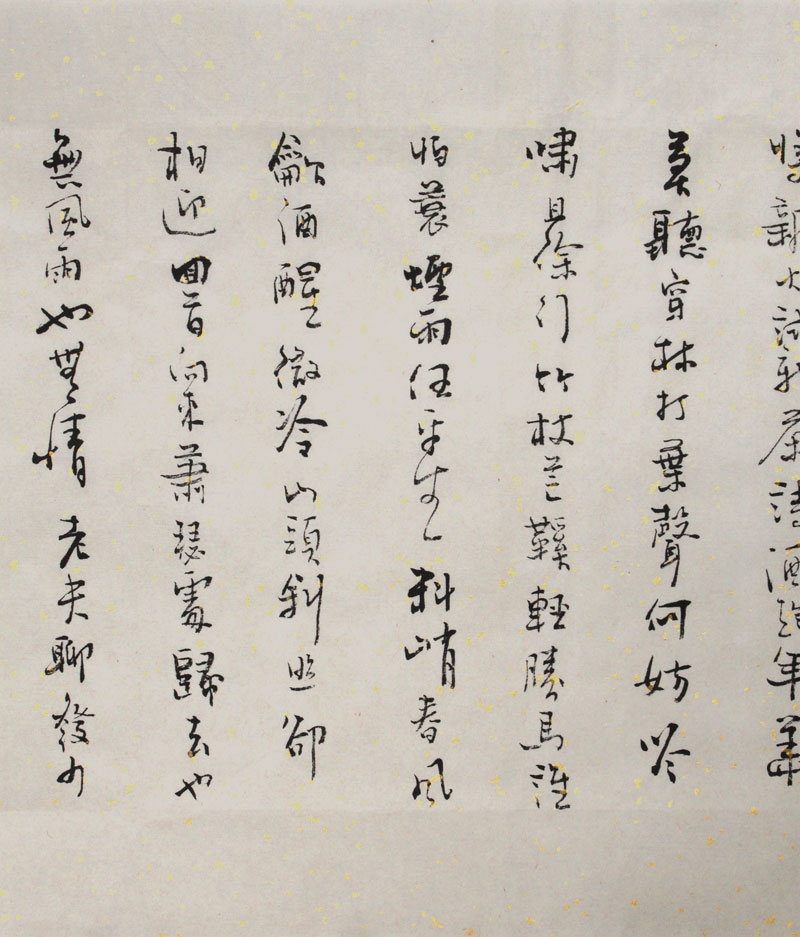 將新火試新茶詩酒趁年華
莫聽穿林打葉聲何妨吟
嘯且徐行竹杖芒鞵輕勝馬誰
怕蓑煙雨任平生一料峭春風
龡酒醒微冷山頭斜照卻
相迎回首向來蕭瑟處歸去也
無風雨也無情老夫聊發少